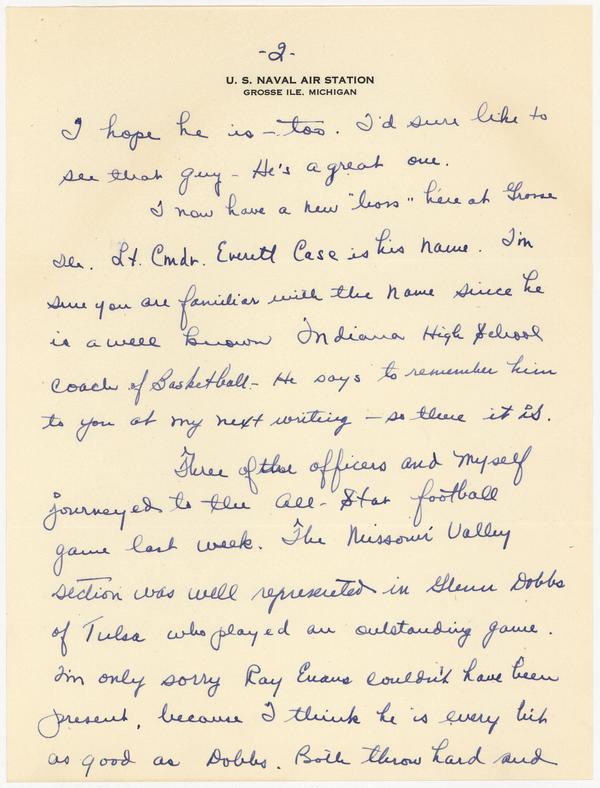 -2-
U. S. NAVAL AIR STATION
GROSSE ILE, MICHIGAN
I hope he is - too. I'd sure like to
see that guy - He's a great one.
I now have a new "boss" here at Grosse
Ile. Lt. Cmdr. Everett Case is his name. I'm
sure you are familiar with the name since he
is a well known Indiana High School
coach of Basketball - He says to remember him
to you at my next writing - so there it is.
Three of the officers and myself
journeyed to the All-Star football
game last week. The Missouri Valley
section was well represented in Glenn Dobbs
of Tulsa who played an outstanding game.
I'm only sorry Ray Evans couldn't have been
present, because I think he is every bit
as good as Dobbs. Both throw hard and